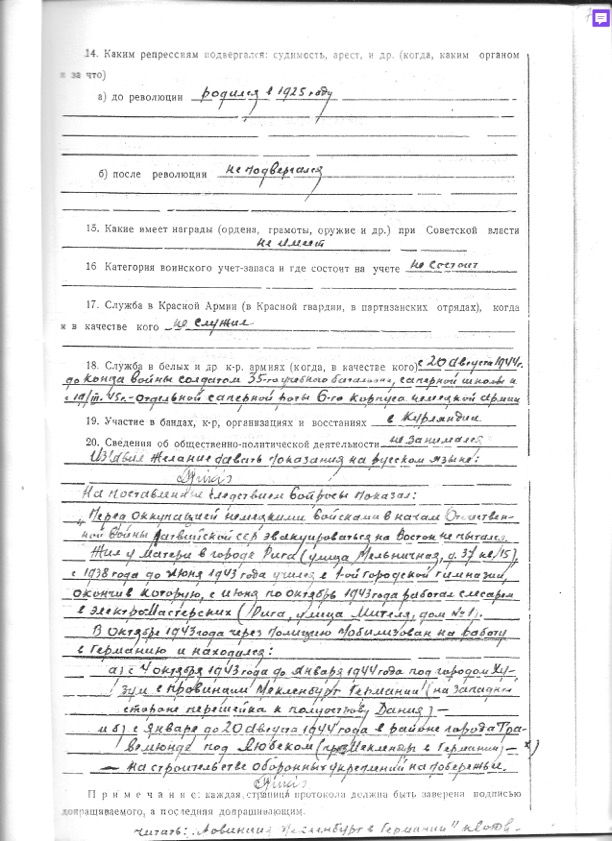 14. Каким репрессиям подвергался: судимость, арест, и др. (когда, каким органом
и за что)
а) до революции родился в 1925 году
б) после революции не подвергался
15. Какие имеет награды (ордена, грамоты, оружие и др.) при Советской власти
не имеет
16 Категория воинского учет-запаса и где состоит на учете не состоит
17. Служба в Красной Армии (в Красной гвардии, в партизанских отрядах), когда
и в качестве кого не служил
18. Служба в белых и др к-р. армиях (когда, в качестве кого) с 20 августа 1944 г.
до конца войны солдатом 35-го учебного батальона, саперной школы и
с 19/III. 45 г. - отдельной саперной роты 6-го корпуса немецкой армии
19. Участие в бандах, к-р, организациях и восстаниях в Курляндии
20. Сведения об общественно-политической деятельности не занимался
Изъявил желание давать показания на русском языке:
На поставленные следствием вопросы показал:
„Перед оккупацией немецкими войсками в начале Отечествен-
ной войны Латвийской ССР эвакуироваться на Восток не пытался.
Жил у матери в городе Рига (улица Мельничная, д. 37 кв/15),
с 1938 года до июня 1943 года учился в 1-ой городской гимназии,
окончив которую, с июня по октябрь 1943 года работал слесарем
в электромастерских (Рига, улица дом № 1).
В октябре 1943 года через полицию мобилизован на работу
в Германию и находился:
а) с 4 октября 1943 года до января 1944 года под городом Ху-
зум с провинции Мекленбург Германии (на западной
стороне перешейка к полуострову Дания) —
и б) с января до 20 августа 1944 года в районе города Тра-
вемюнде под Любеком ( Мекленбург в Германии) — х)
— на строительстве оборонных укреплений на побережье.
Примечание: каждая страница протокола должна быть заверена подписью
допрашиваемого, а последняя допрашивающим.
читать: Мекленбург в Германии"